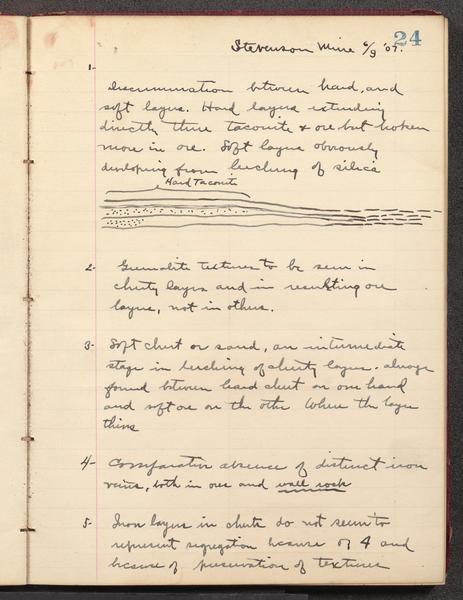 24
Stevenson Mine 6/9 '07.
1-
Discrimination between hard, and
soft layers. Hard layers extending
directly thru taconite & ore but broken
more in ore. Soft layers obviously
developing from leaching of silica
Hard Taconite
2- Greenalite textures to be seen in
cherty layers and in resulting ore
layers, not in others.
3- Soft chert or sand, an intermediate
stage in leaching of cherty layers. always
found between hard chert on one hand
and soft ore on the other Where the layer
thins
4- Comparative absence of distinct iron
veins, both in ores and wall rock
5- Iron layers in chert do not seem to
represent segregation because of 4 and
because of preservation of textures